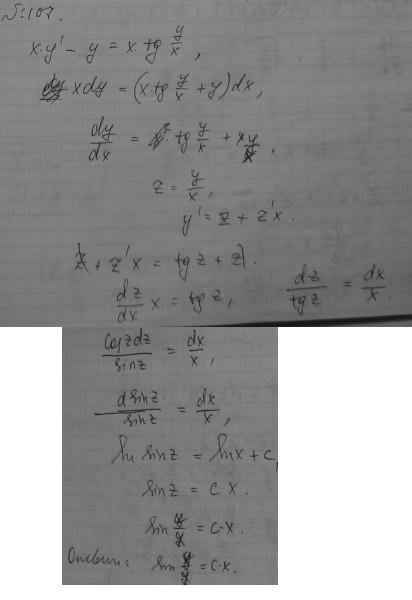 №107.
x·y' - y = x·tg y/x,
xdy = (x·tg y/x + y)dx,
dy/dx = tg y/x + y/x,
z = y/x,
y' = z + z'x.
z + z'x = tg z + z.
dz/dx x = tg z, dz/tg z = dx/x.
cos z dz/sin z = dx/x,
d sin z/sin z = dx/x,
ln sin z = ln x + c,
sin z = c x.
sin y/x = c·x.
Ответ: sin y/x = c·x.